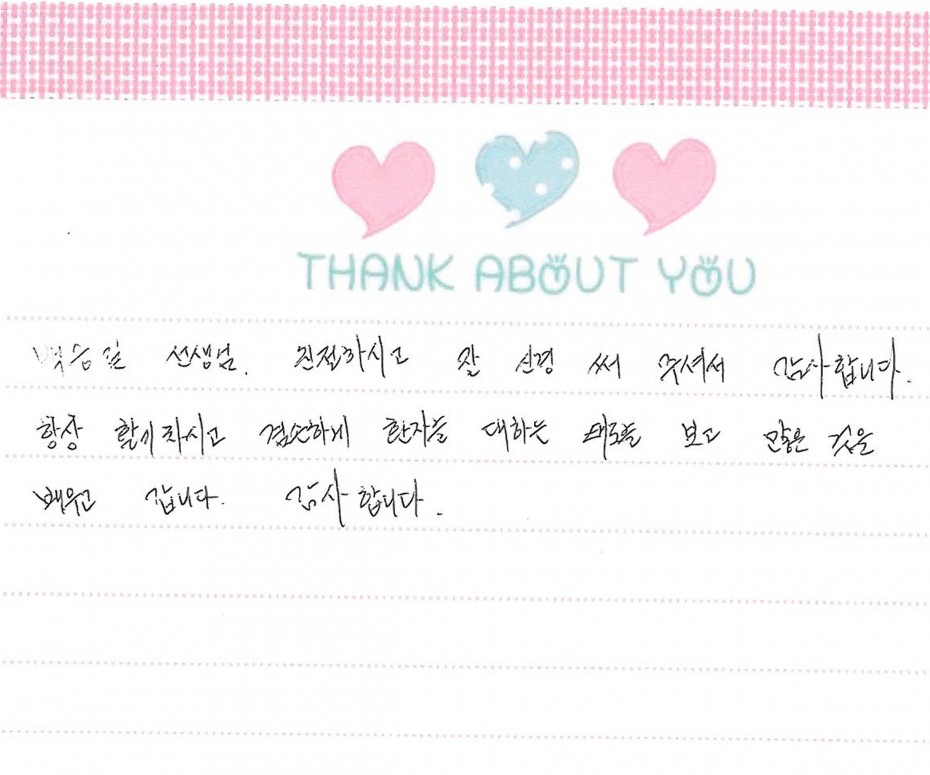 THANK ABOUT YOU
선생님. 친절하시고 잘 신경 써 주셔서 감사합니다.
항상 활기차시고 겸손하게 환자들 대하는 태도를 보고 많은 것을
배우고 갑니다. 감사합니다.